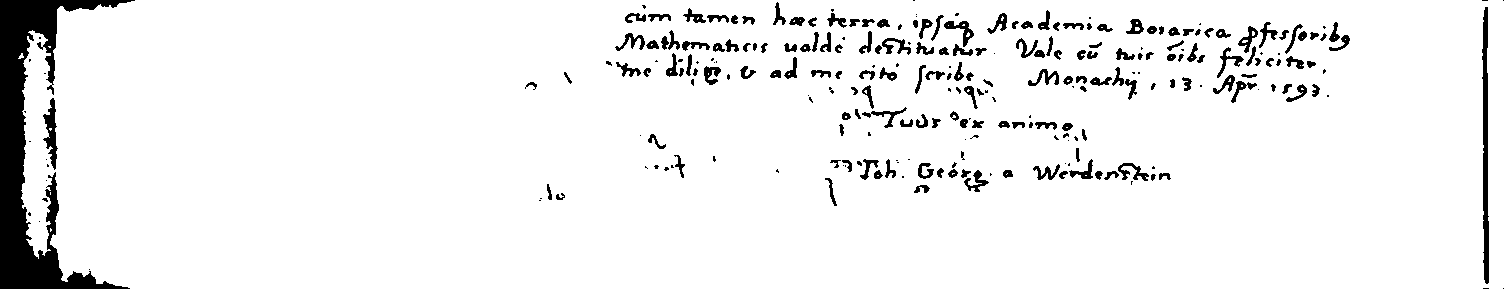 cùm tamen hæc terra, ipsaq́ꝫ Academia Boiarica ꝓfessoribꝰ
Mathematicis ualdè destituatur. Vale cū tuis oībs feliciter,
me dilige, & ad me citò scribe. Monachij, 13. Apr̄. 1593.
Tuus ex animo
Joh. Georg. a Werdenstein